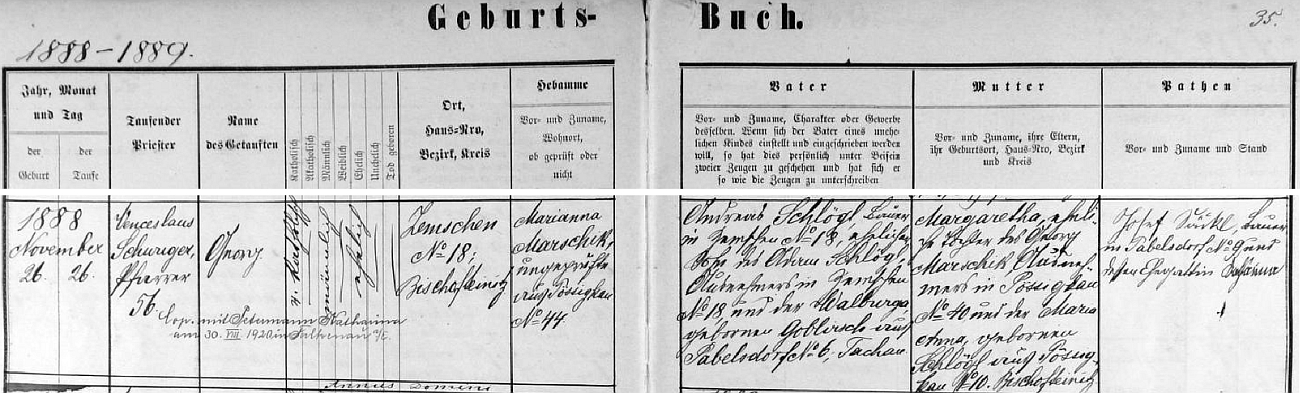 Geburts-Buch.
35.
1888-1889.
Jahr, Monat
und Tag
der
Geburt
der
Taufe
Taufender
Priester
Name
des Getauften
Katholisch
Akatholisch
Männlich
Weiblich
Ehelich
Unehelich
Tod geboren
Ort,
Haus-Nro,
Bezirk, Kreis
Hebamme
Vor- und Zuname,
Wohnort,
ob geprüft oder
nicht
Vater
Vor- und Zuname, Charakter oder Gewerbe
desselben. Wenn sich der Vater eines unehe-
lichen Kindes einstellt und eingeschrieben werden
will, so hat dies persönlich unter Beisein
zweier Zeugen zu geschehen und hat sich er
so wie die Zeugen zu unterschreiben
Mutter
Vor- und Zuname, ihre Eltern,
ihr Geburtsort, Haus-Nro, Bezirk
und Kreis
Pathen
Vor- und Zuname und Stand
1888
November
26. 26.
Wenceslaus
Schuriger,
Pfarrer
56.
Georg
männlich
ehelich
Zemschen
No 18;
Bischofteinitz
Marianna
Marschik,
ungeprüfte
aus Pössigkau
No 44.
Cop. mit Katharina
am 30. VIII. 1920 in Falkenau
Andreas Schlögl, Bauer
in Zemschen No 18, ehelicher
Sohn des Adam Schlögl,
Ausnehmers in Zemschen
No 18 und der Walburga
gebornen Goblirsch aus
Pabelsdorf No 6. Tachau.
Margaretha, eheli-
che Tochter des Georg
Marschek, Ausneh-
mers in Pössigkau
No 40 und der Maria
Anna, gebornen
Schlögl aus Pössig-
kau No 10. Bischofteinitz
Josef Bauer
in Pabelsdorf No 9 und
dessen Ehegattin
Annus Domini